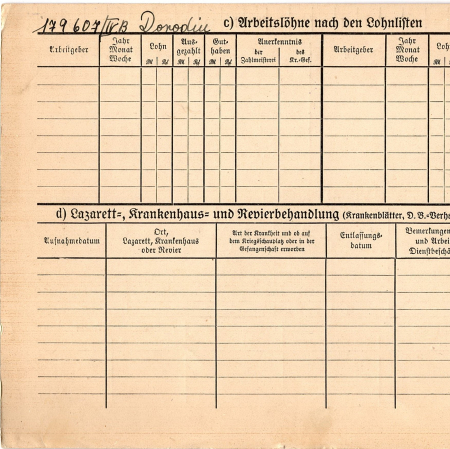 179607/IVB Dorodin c) Arbeitslöhne nach den Lohnlisten
Arbeitgeber Jahr Monat Woche Lohn Ausgezahlt Guthaben Anerkenntnis Arbeitgeber Jahr Monat Woche Loh
der Zahlmeisterei des Kr.-Gef.
d) Lazarett=, Krankenhaus= und Revierbehandlung (Krankenblätter, D. B.-Verhe
Aufnahmedatum Ort, Lazarett, Krankenhaus oder Revier Art der Krankheit und ob auf dem Kriegsschauplatz oder in der Gefangenschaft erworben Entlassungs-datum Bemerkungen und Arbei Dienstbeschä